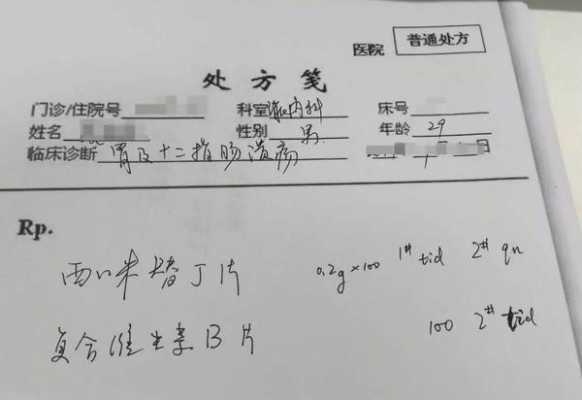 医院 普通处方
处方笺
门诊/住院号 科室 消内科 床号
姓名 性别 男 年龄 29
临床诊断 胃及十二指肠溃疡 日
Rp.
西咪替丁片 0.2g×100 1# tid 2# qn
复合维生素B片 100 2# tid